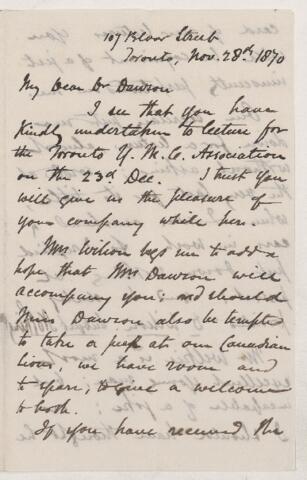 107 Bloor Street
Toronto, Nov. 28th, 1870
My Dear Dr Dawson
I see that you have
kindly undertaken to lecture for
the Toronto Y. M. C. Association
on the 23d Dec. I trust you
will give us the pleasure of
your company while here.
Mrs Wilson begs me to add a
hope that Mrs Dawson will
accompany you; and should
Miss Dawson also be tempted
to take a peep at our Canadian
lions, we have room and
to spare, to give a welcome
to both.
If you have received the